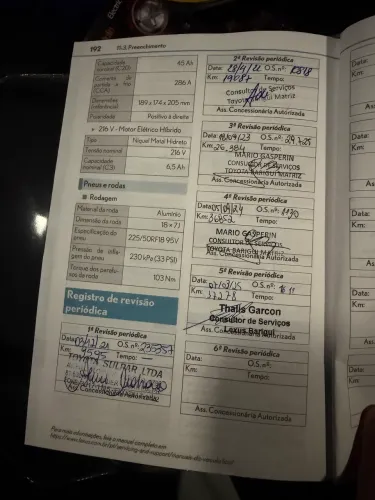 192
11-3. Preenchimento
Capacidade nominal (C20) 45 Ah
Corrente de partida a frio (CCA) 286 A
Dimensões (referência) 189 x 174 x 205 mm
Polaridade Positivo à direita
216 V - Motor Elétrico Híbrido
Tipo Níquel Metal Hidreto
Tensão nominal 216 V
Capacidade nominal (C3) 6,5 Ah
Pneus e rodas
■ Rodagem
Material da roda Alumínio
Dimensão da roda 18 x 7J
Especificação do pneu 225/50RF18 95V
Pressão de inflagem do pneu 230 kPa (33 PSI)
Torque dos parafusos da roda 103 Nm
Registro de revisão periódica
1ª Revisão periódica
Data: O.S. nº:
Km: 4595 Tempo:
TOYOTA SULPAR LTDA
Ass. Concessionária Autorizada
2ª Revisão periódica
Data: 28/4/22 O.S. nº:
Km: 19087 Tempo:
Consultor de Serviços
Toyota Barigui Matriz
Ass. Concessionária Autorizada
3ª Revisão periódica
Data: O.S. nº:
Km: 26.384 Tempo:
MARIO GASPERIN
CONSULTOR DE SERVIÇOS
TOYOTA BARIGUI MATRIZ
Ass. Concessionária Autorizada
4ª Revisão periódica
Data: O.S. nº:
Km: Tempo:
MARIO GASPERIN
CONSULTOR DE SERVIÇOS
TOYOTA BARIGUI MATRIZ
Ass. Concessionária Autorizada
5ª Revisão periódica
Data: O.S. nº:
Km: Tempo:
Thalis Garcon
Consultor de Serviços
Lexus Barigui
Ass. Concessionária Autorizada
6ª Revisão periódica
Data: O.S. nº:
Km: Tempo:
Ass. Concessionária Autorizada
Para mais informações, leia o manual completo em
Data:
Km:
Ass.
Data:
Km:
Ass. C
Data:
Km:
Ass. Co
Data:
Km:
Ass. Con
Data:
Km: